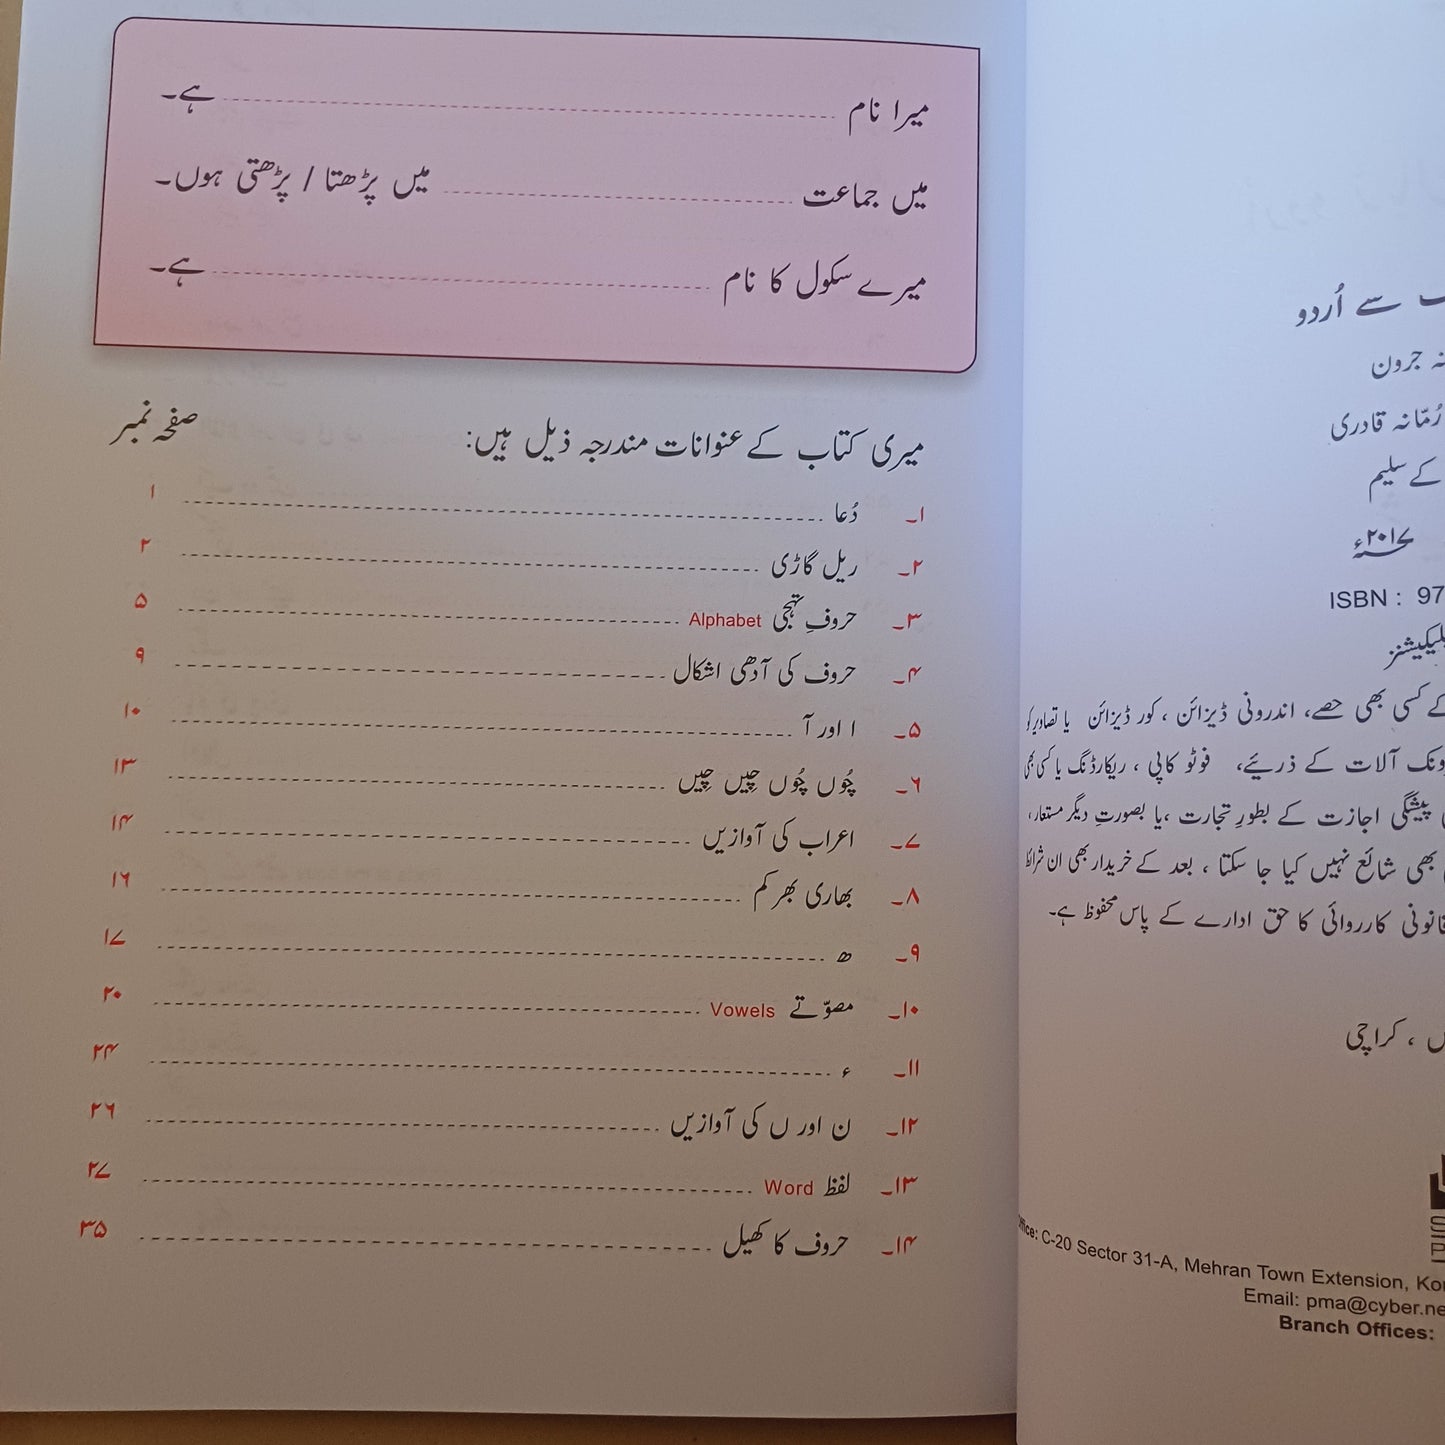 میرا نام ہے۔
میں جماعت میں پڑھتا / پڑھتی ہوں۔
میرے سکول کا نام ہے۔
میری کتاب کے عنوانات مندرجہ ذیل ہیں: صفحہ نمبر
۱۔ دُعا ۱
۲۔ ریل گاڑی ۲
۳۔ حروفِ تہجی Alphabet ۵
۴۔ حروف کی آدھی اشکال ۹
۵۔ ا اور آ ۱۰
۶۔ چُوں چُوں چِیں چِیں ۱۳
۷۔ اعراب کی آوازیں ۱۴
۸۔ بھاری بھر کم ۱۶
۹۔ ھ ۱۷
۱۰۔ مصوّتے Vowels ۲۰
۱۱۔ ء ۲۴
۱۲۔ ن اور ں کی آوازیں ۲۶
۱۳۔ لفظ Word ۲۷
۱۴۔ حروف کا کھیل ۳۵
سے اُردو
جرون
رُمّانہ قادری
کے سلیم
۲۰۱۷ء
ISBN : 97
کے کسی بھی حصے، اندرونی ڈیزائن ، کور ڈیزائن یا تصاویر کو
آلات کے ذریئے، فوٹو کاپی ، ریکارڈنگ یا کسی بھی
پیشگی اجازت کے بطورِ تجارت ،یا بصورتِ دیگر مستعار،
بھی شائع نہیں کیا جا سکتا ، بعد کے خریدار بھی ان شرائط
قانونی کارروائی کا حق ادارے کے پاس محفوظ ہے۔
، کراچی
Office: C-20 Sector 31-A, Mehran Town Extension, Kor
Email: pma@cyber.ne
Branch Offices: